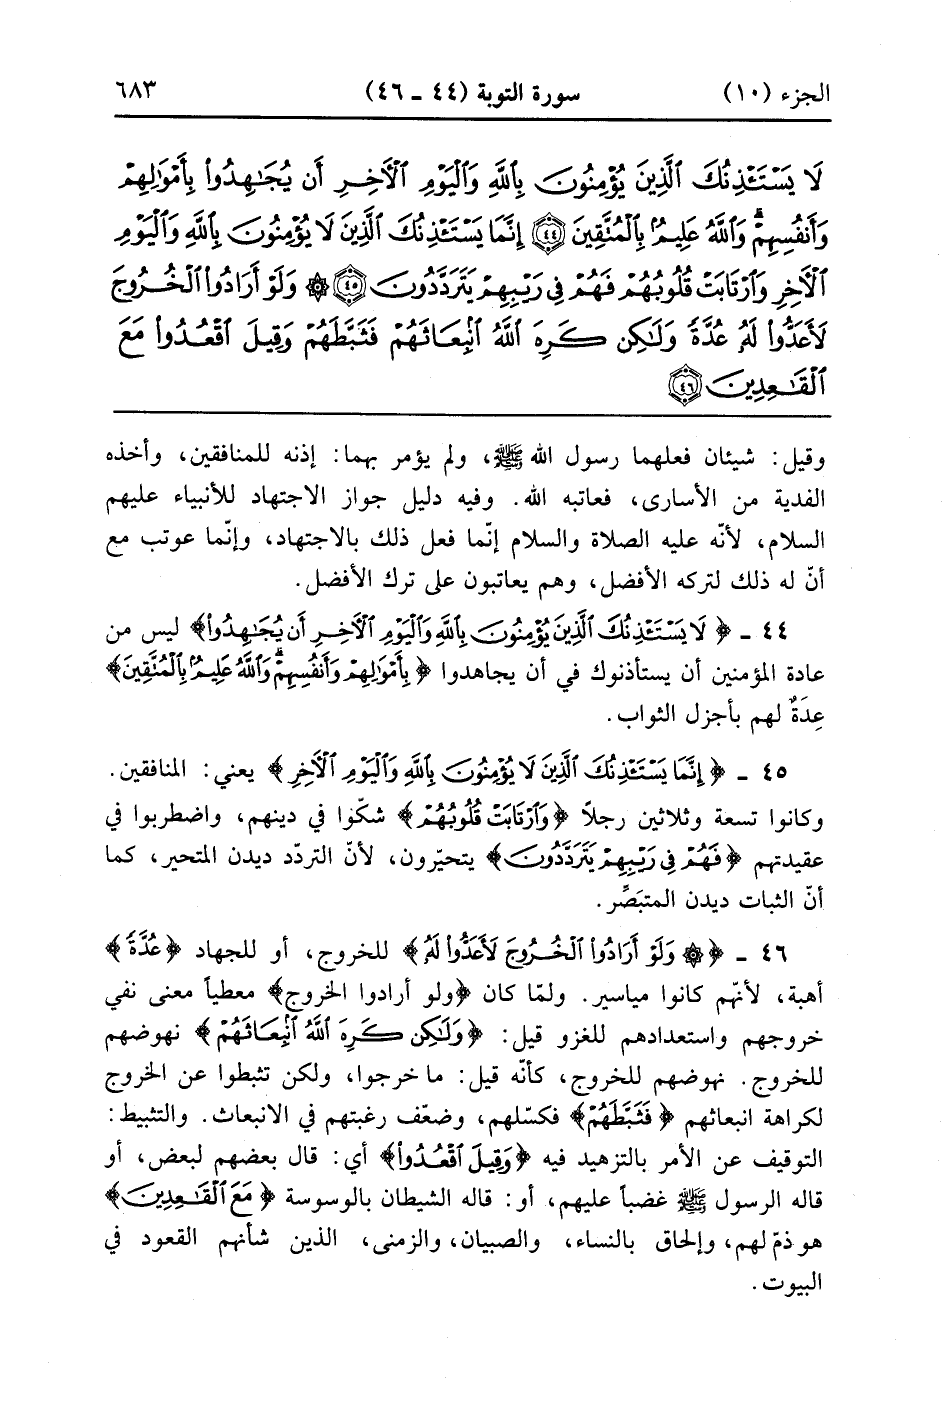 الجزء (١٠) سورة التوبة (٤٤ ـ ٤٦) ٦٨٣
لَا يَسْتَـْٔذِنُكَ ٱلَّذِينَ يُؤْمِنُونَ بِٱللَّهِ وَٱلْيَوْمِ ٱلْـَٔاخِرِ أَن يُجَـٰهِدُوا۟ بِأَمْوَٰلِهِمْ
وَأَنفُسِهِمْ ۗ وَٱللَّهُ عَلِيمٌۢ بِٱلْمُتَّقِينَ ﴿٤٤﴾ إِنَّمَا يَسْتَـْٔذِنُكَ ٱلَّذِينَ لَا يُؤْمِنُونَ بِٱللَّهِ وَٱلْيَوْمِ
ٱلْـَٔاخِرِ وَٱرْتَابَتْ قُلُوبُهُمْ فَهُمْ فِى رَيْبِهِمْ يَتَرَدَّدُونَ ﴿٤٥﴾ ۞ وَلَوْ أَرَادُوا۟ ٱلْخُرُوجَ
لَأَعَدُّوا۟ لَهُۥ عُدَّةً وَلَـٰكِن كَرِهَ ٱللَّهُ ٱنۢبِعَاثَهُمْ فَثَبَّطَهُمْ وَقِيلَ ٱقْعُدُوا۟ مَعَ
ٱلْقَـٰعِدِينَ ﴿٤٦﴾
وقيل: شيئان فعلهما رسول الله ﷺ، ولم يؤمر بهما: إذنه للمنافقين، وأخذه
الفدية من الأسارى، فعاتبه الله. وفيه دليل جواز الاجتهاد للأنبياء عليهم
السلام، لأنّه عليه الصلاة والسلام إنّما فعل ذلك بالاجتهاد، وإنّما عوتب مع
أنّ له ذلك لتركه الأفضل، وهم يعاتبون على ترك الأفضل.
٤٤ ـ ﴿لَا يَسْتَـْٔذِنُكَ ٱلَّذِينَ يُؤْمِنُونَ بِٱللَّهِ وَٱلْيَوْمِ ٱلْـَٔاخِرِ أَن يُجَـٰهِدُوا۟﴾ ليس من
عادة المؤمنين أن يستأذنوك في أن يجاهدوا ﴿بِأَمْوَٰلِهِمْ وَأَنفُسِهِمْ ۗ وَٱللَّهُ عَلِيمٌۢ بِٱلْمُتَّقِينَ﴾
عِدَةٌ لهم بأجزل الثواب.
٤٥ ـ ﴿إِنَّمَا يَسْتَـْٔذِنُكَ ٱلَّذِينَ لَا يُؤْمِنُونَ بِٱللَّهِ وَٱلْيَوْمِ ٱلْـَٔاخِرِ﴾ يعني: المنافقين.
وكانوا تسعة وثلاثين رجلاً ﴿وَٱرْتَابَتْ قُلُوبُهُمْ﴾ شكّوا في دينهم، واضطربوا في
عقيدتهم ﴿فَهُمْ فِى رَيْبِهِمْ يَتَرَدَّدُونَ﴾ يتحيّرون، لأنّ التردّد ديدن المتحير، كما
أنّ الثبات ديدن المتبَصِّر.
٤٦ ـ ﴿۞ وَلَوْ أَرَادُوا۟ ٱلْخُرُوجَ لَأَعَدُّوا۟ لَهُۥ﴾ للخروج، أو للجهاد ﴿عُدَّةً﴾
أهبة، لأنّهم كانوا مياسير. ولمّا كان ﴿ولو أرادوا الخروج﴾ معطياً معنى نفي
خروجهم واستعدادهم للغزو قيل: ﴿وَلَـٰكِن كَرِهَ ٱللَّهُ ٱنۢبِعَاثَهُمْ﴾ نهوضهم
للخروج. نهوضهم للخروج، كأنّه قيل: ما خرجوا، ولكن تثبطوا عن الخروج
لكراهة انبعاثهم ﴿فَثَبَّطَهُمْ﴾ فكسّلهم، وضعّف رغبتهم في الانبعاث. والتثبيط:
التوقيف عن الأمر بالتزهيد فيه ﴿وَقِيلَ ٱقْعُدُوا۟﴾ أي: قال بعضهم لبعض، أو
قاله الرسول ﷺ غضباً عليهم، أو: قاله الشيطان بالوسوسة ﴿مَعَ ٱلْقَـٰعِدِينَ﴾
هو ذمّ لهم، وإلحاق بالنساء، والصبيان، والزمنى، الذين شأنهم القعود في
البيوت.